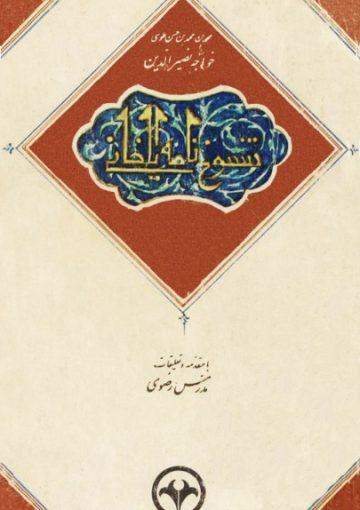 محمد بن محمد بن حسن طوسی
خواجه نصیر الدین
تنسوخ نامه ایلخانی
با مقدمه و تعلیقات
مدرس رضوی